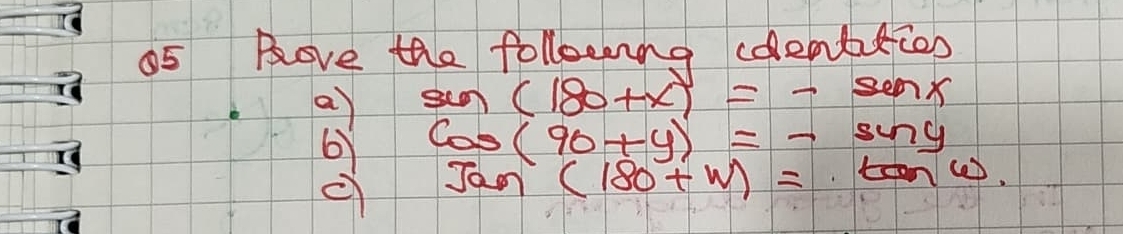 Q5 Prove the following identities
a) sin (180+x) = - sinx
b) Cos (90+y) = - siny
c) Tan (180+W) = . tan w.